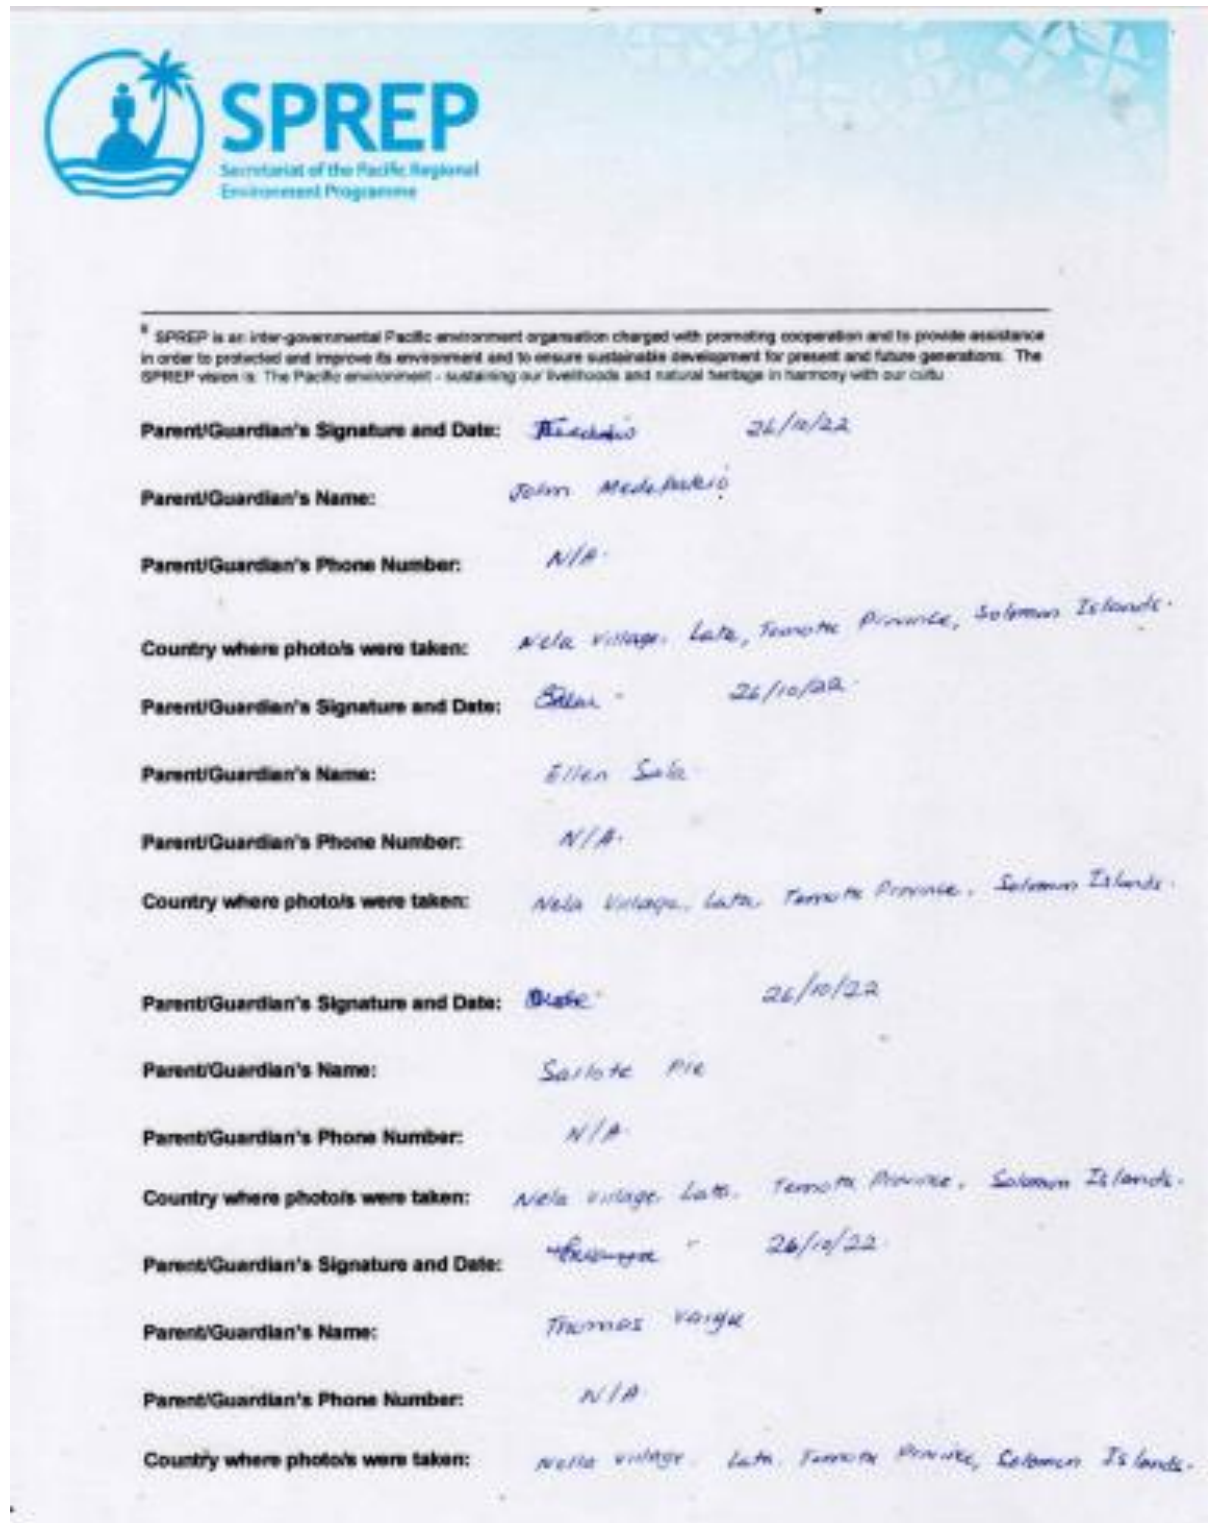 SPREP
Secretariat of the Pacific Regional
Environment Programme
8 SPREP is an inter-governmental Pacific environment organisation charged with promoting cooperation and to provide assistance
in order to protected and improve its environment and to ensure sustainable development for present and future generations. The
SPREP vision is: The Pacific environment - sustaining our livelihoods and natural heritage in harmony with our cultu
Parent/Guardian's Signature and Date: 26/10/22
Parent/Guardian's Name: John
Parent/Guardian's Phone Number: N/A.
Country where photo/s were taken: Nela Village, Lata, Temotu Province, Solomon Islands.
Parent/Guardian's Signature and Date: 26/10/22.
Parent/Guardian's Name: Ellen Sala
Parent/Guardian's Phone Number: N/A.
Country where photo/s were taken: Nela Village, Lata, Temotu Province, Solomon Islands.
Parent/Guardian's Signature and Date: 26/10/22
Parent/Guardian's Name: Sailote Pie
Parent/Guardian's Phone Number: N/A.
Country where photo/s were taken: Nela Village, Lata, Temotu Province, Solomon Islands.
Parent/Guardian's Signature and Date: 26/10/22.
Parent/Guardian's Name: Thomas
Parent/Guardian's Phone Number: N/A.
Country where photo/s were taken: Nella Village, Lata, Temotu Province, Solomon Islands.